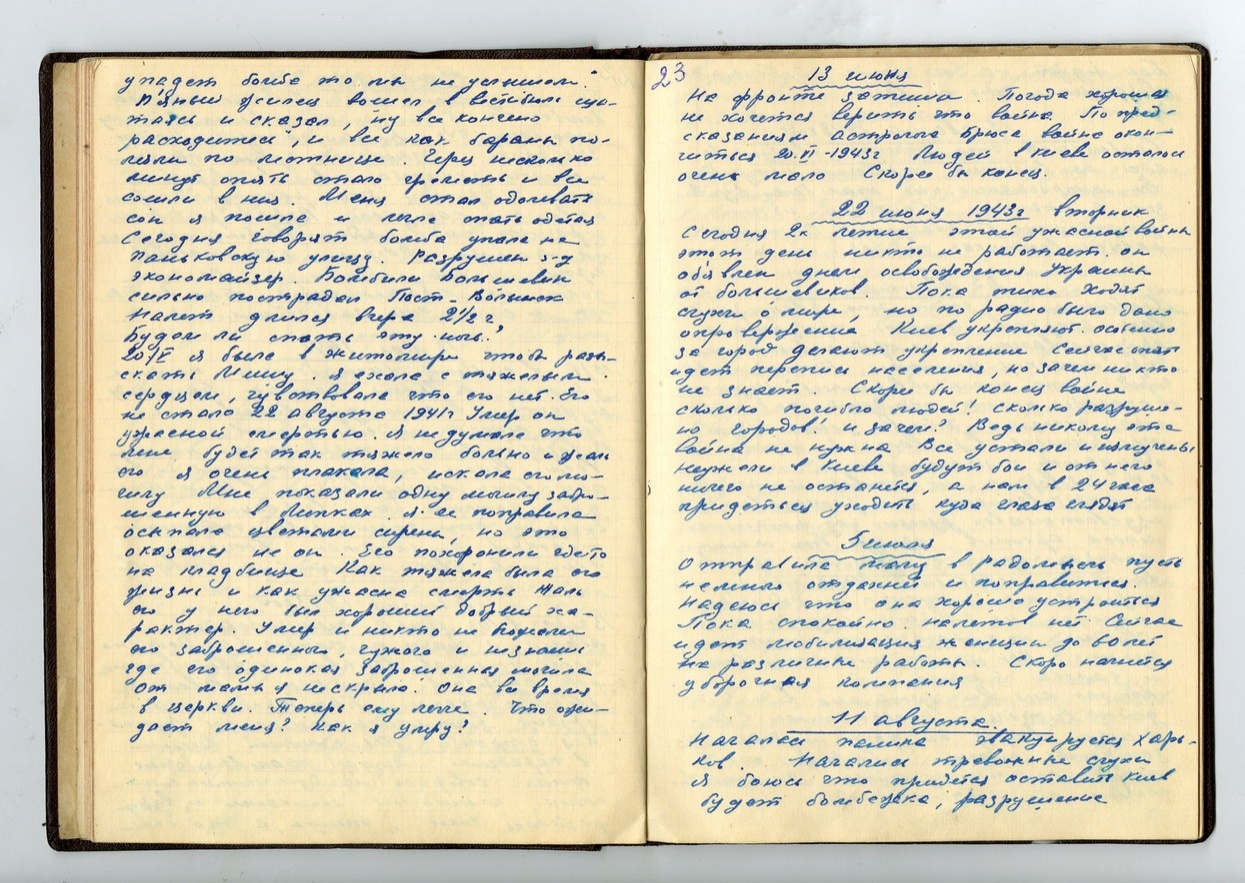 упадет бомба то мы не услышим."
Пьяный жилец вошел в вестибюль ша-
таясь и сказал „ну все кончено
расходитесь", и все как бараны по-
лезли по лестнице. Через несколько
минут опять стало греметь и все
сошли вниз. Меня стал одолевать
сон я пошла и легла спать одетая
Сегодня говорят бомба упала на
Паньковскую улицу. Разрушен з-д
экономайзер. Бомбили большевики
сильно пострадал Пост-Волынск
Налет длился вчера 2 1/2 ч
Будем ли спать эту ночь?
20/V я была в Житомире чтобы разы-
скать Мишу. Я ехала с тяжелым
сердцем, чувствовала что его нет. Его
не стало 22 августа 1941г Умер он
ужасной смертью. Я не думала что
мне будет так тяжело больно и жаль
его я очень плакала, искала его мо-
гилу Мне показали одну могилу забро-
шенную в Липках. Я ее поправила
осыпала цветами сирени, но это
оказался не он. Его похоронили где то
на кладбище Как тяжела была его
жизнь и как ужасна смерть Жаль
его у него был хороший добрый ха-
рактер. Умер и никто не пожалел
его заброшенного, чужого и не знаешь
где его одинокая заброшенная могила
От мамы я не скрыла. Она во время
в церкви. Теперь ему легче. Что ожи-
дает меня? Как я умру?
23
13 июня
На фронте затишье. Погода хорошая
не хочется верить что война. По пред-
сказаниям астролога Брюса война окон-
читься 20.VI-1943г Людей в Киеве осталось
очень мало Скорей бы конец.
22 июня 1943г вторник
Сегодня 2х летие этой ужасной войны
этот день никто не работает. он
объявлен днем освобождения Украины
от большевиков. Пока тихо ходят
слухи о мире но по радио было дано
опровержение Киев укрепляют. особенно
за город делают укрепление Сейчас опять
идет перепись населения, но зачем никто
не знает. Скорей бы конец войне
сколько погибло людей! сколько разруше-
но городов! и зачем? Ведь никому эта
война не нужна Все устали и измучены
неужели в Киеве будут бои и от него
ничего не останется, а нам в 24 часа
придеться уходить куда глаза глядят
5 июля
Отправила маму в Радомысль пусть
немного отдохнет и поправится.
Надеюсь что она хорошо устроиться
Пока спокойно налетов нет Сейчас
идет мобилизация женщин до 50 лет
на различные работы. Скоро начнется
уборочная компания
11 августа
Началась паника эвакуируется Харь-
ков. Начались тревожные слухи
Я боюсь что придется оставить Киев
будет бомбежка, разрушение